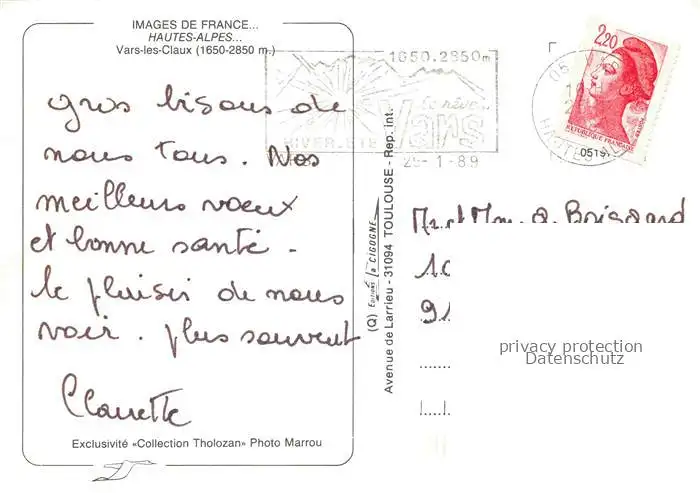 IMAGES DE FRANCE...
HAUTES-ALPES...
Vars-les-Claux (1650-2850 m.)
gros bisous de
nous tous. Nos
meilleurs voeux
et bonne santé -
le plaisir de nous
voir. plus souvent
Claudette
Exclusivité «Collection Tholozan» Photo Marrou
(Q) Editions la CIGOGNE
Avenue de Larrieu - 31094 TOULOUSE - Rep. int.
1650.2850m
le rêve...
Vars
HIVER. ETE
25-1-89
05
HAUTES
2,20
REPUBLIQUE FRANÇAISE
Mr et Mme a. Boisard
10
91
privacy protection
Datenschutz